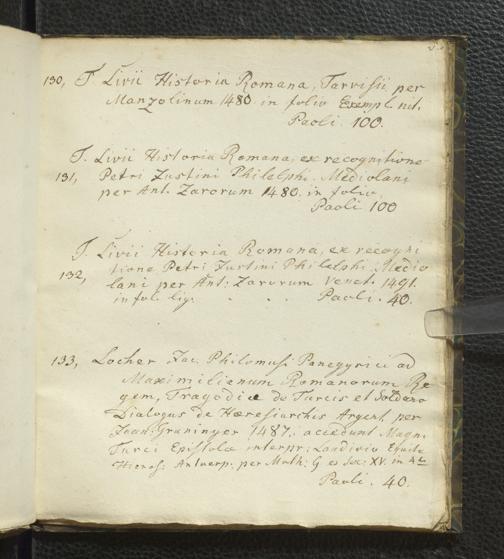 130, T. Livii Historia Romana, Tarvisii, per
Manzolinum 1480. in folio Exempl. nit.
Paoli. 100.
T. Livii Historia Romana, ex recognitione
131, Petri Justini Philelphi. Mediolani
per Ant. Zarorum 1480. in folio
Paoli 100
T. Livii Historia Romana, ex recogni
132, tione Petri Justini Philelphi Medio
lani per Ant: Zarorum Venet. 1491.
in fol. lig. . . . Paoli. 40.
133, Locher Jac. Philomusi Panegyrici ad
Maximilienum Romanorum Re
gem, Tragodiæ de Turcis et Soldano
Dialogus de Heresiarchis Argent. per
Joan: Gruninger 1487.; accedunt Magni
Turci Epistolæ interpr: Landivio Equite
Hieros: Antverp: per Math: G es Sæc: XV. in 4to
Paoli. 40.